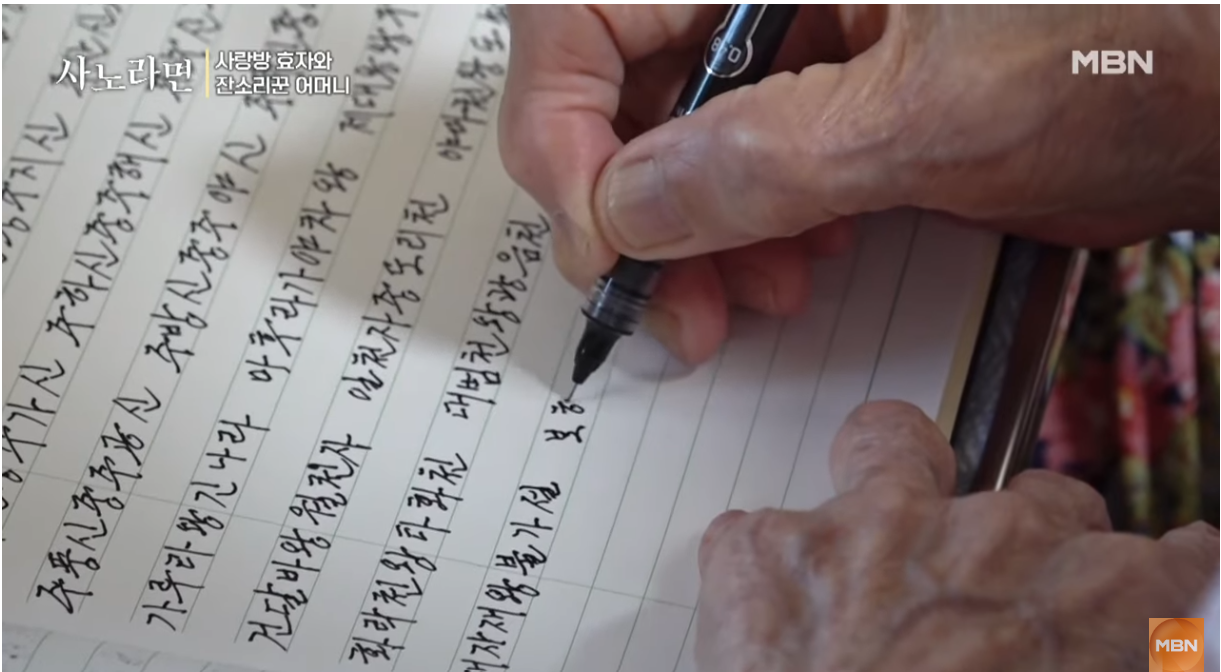 사노라면
사랑방 효자와
잔소리꾼 어머니
MBN
0.48
중주지신
주가신 주하신중주해신
주풍신중주공신 주방신중주야신 주
가루라왕긴나라 마후라가야차왕 제대용왕구
건달바왕월천자 일천자중도리천 야마천왕도
화락천왕타화천 대범천왕광음천
대자재왕불가설 보
MBN